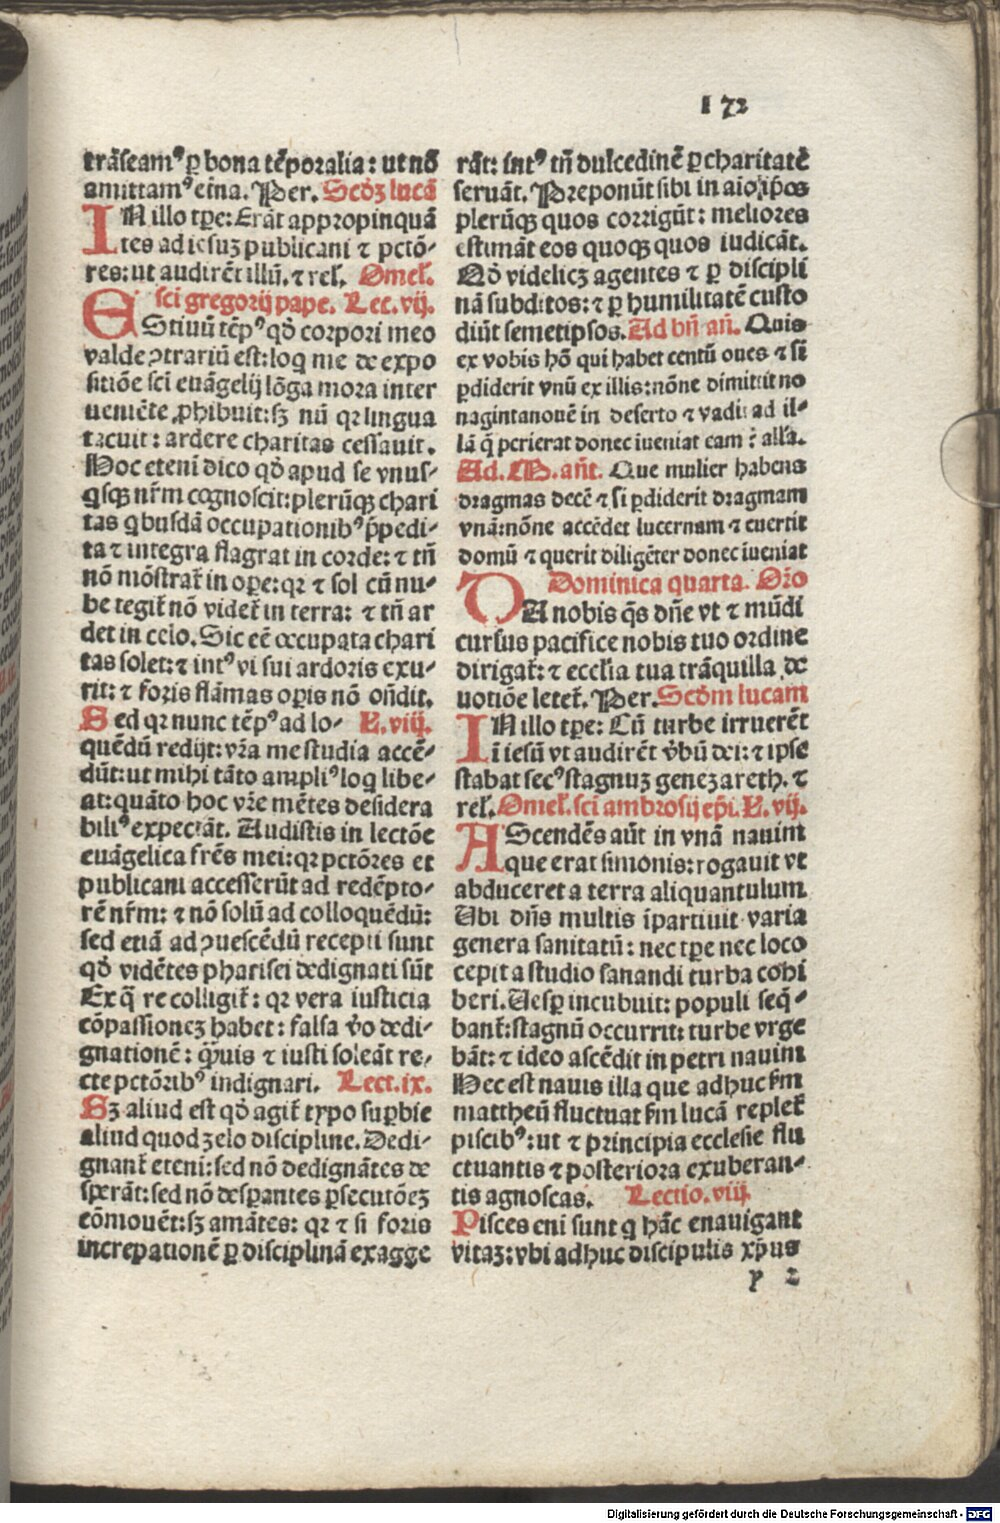 172
trāseamꝰ ꝑ bona tēporalia: ut nō
amittamꝰ eĩna. Per. Scd́ꝫ lucā
IN illo tꝑe: Erāt appropinquā
tes ad iesuꝫ publicani ⁊ pctō-
res: ut audirēt illū. ⁊ rel̃. Omel̃.
sci gregorij pape. Lec. vij.
EStiuū tēpꝰ qď corpori meo
valde ꝯtrariū est: loq me de expo
sitiōe sci euāgelij lōga mora inter
ueniēte ꝓhibuit: sꝫ nū qꝛ lingua
tacuit: ardere charitas cessauit.
Hoc etenī dico qď apud se vnus-
qsqꝫ nr̄m cognoscit: plerūqꝫ chari
tas qbusdā occupationibꝰ p̄pedi-
ta ⁊ integra flagrat in corde: ⁊ tñ
nō mōstrat̃ in oꝑe: qꝛ ⁊ sol cū nu-
be tegit̃ nō videt̃ in terra: ⁊ tñ ar
det in celo. Sic eē occupata chari
tas solet: ⁊ intꝰ vi sui ardoris exu-
rit: ⁊ foris flāmas oꝑis nō oñdit.
Sed qꝛ nunc tēpꝰ ad lo- L. viij.
quēdū redijt: vr̄a me studia accē-
dūt: ut mihi tāto ampliꝰ loq libe-
at: quāto hoc vr̄e mētes desidera
biliꝰ expectāt. Audistis in lectōe
euāgelica frēs mei: qꝛ pctōres et
publicani accesserūt ad redēpto-
rē nr̄m: ⁊ nō solū ad colloquēdū:
sed etiā ad ꝯuescēdū recepti sunt
qď vidētes pharisei dedignati sūt
Ex q̄ re colligit̃: qꝛ vera iusticia
cōpassioneꝫ habet: falsa v̊o dedi-
gnationē: q̄uis ⁊ iusti soleāt re-
cte pctōribꝰ indignari. Lect. ix.
Sꝫ aliud est qď agit̃ typo suꝑbie
aliud quod zelo discipline. Dedi-
gnant̃ etenī: sed nō dedignātes de
sꝑāt: sed nō desꝑantes ꝑsecutōeꝫ
cōmouēt: sꝫ amātes: qꝛ ⁊ si foris
increpationē ꝑ disciplinā exagge
rāt: intꝰ tñ dulcedinē ꝑ charitatē
seruāt. Preponūt sibi in aio ip̄os
plerūqꝫ quos corrigūt: meliores
estimāt eos quoqꝫ quos iudicāt.
Qď videlicꝫ agentes ⁊ ꝑ discipli
nā subditos: ⁊ ꝑ humilitatē custo
diūt semetipsos. Ad bñ añ. Quis
ex vobis hō qui habet centū oues ⁊ si
ꝑdiderit vnū ex illis: nōne dimittit no
nagintanouē in deserto ⁊ vadit ad il-
lā q̄ perierat donec iueniat eam: all̃a.
Ad. M. añt. Que mulier habens
dragmas decē ⁊ si ꝑdiderit dragmam
vnā: nōne accēdet lucernam ⁊ euertit
domū ⁊ querit diligēter donec īueniat
Dominica quarta. Or̃o
DA nobis q̄s dñe vt ⁊ mūdi
cursus pacifice nobis tuo ordine
dirigat̃: ⁊ ecclīa tua trāquilla de
uotiōe letet̃. Per. Scdm lucam
IN illo tꝑe: Cū turbe irruerēt
ī iesū vt audirēt v̊bū dei: ⁊ ipse
stabat secꝰ stagnuꝫ genezareth. ⁊
rel̃. Omel̃. sci ambrosij ep̄i. L. vij.
AScendēs aūt in vnā nauim
que erat simonis: rogauit vt
abduceret a terra aliquantulum
Ubi dñs multis īpartiuit varia
genera sanitatū: nec tꝑe nec loco
cepit a studio sanandi turba cohi
beri. Uesꝑ incubuit: populi seq̄-
bant̃: stagnū occurrit: turbe vrge
bāt: ⁊ ideo ascēdit in petri nauim
Hec est nauis illa que adhuc ẜm
mattheū fluctuat ẜm lucā replet̃
piscibꝰ: ut ⁊ principia ecclesie flu
ctuantis ⁊ posteriora exuberan-
tis agnoscas. Lectio. viij.
Pisces enī sunt q hāc enauigant
vitaꝫ: vbi adhuc discipulis xp̄us
y 2
Digitalisierung gefördert durch die Deutsche Forschungsgemeinschaft - DFG